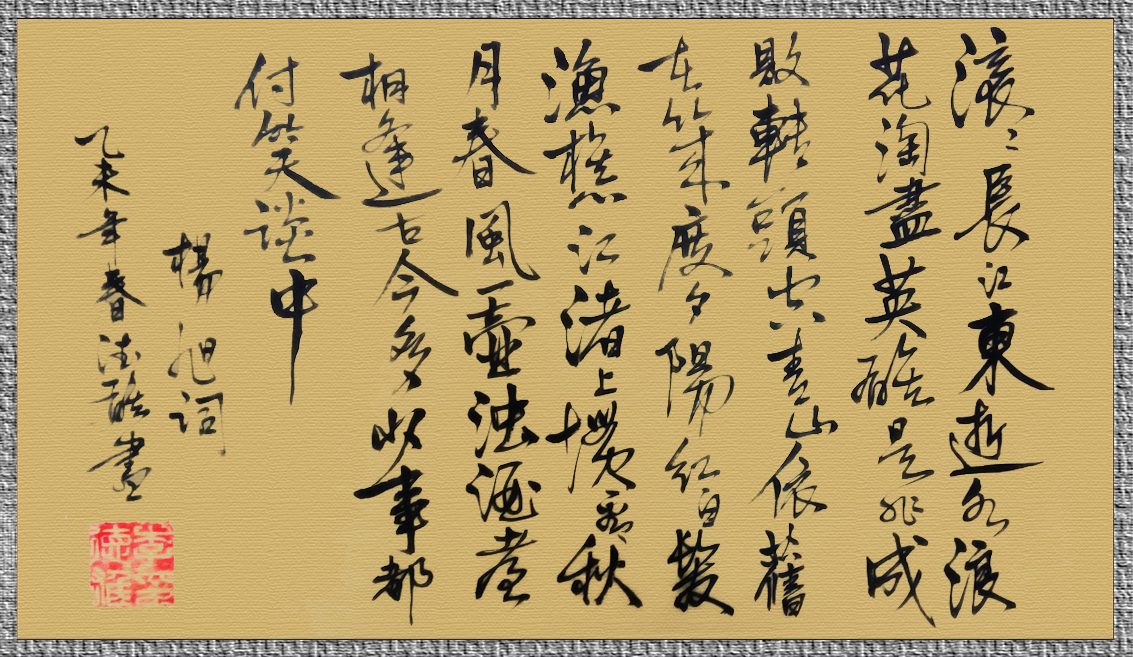 滾〻長江東逝水浪
花淘盡英雄是非成
敗轉頭空青山依舊
在幾度夕陽紅白髮
漁樵江渚上慣看秋
月春風一壺浊酒喜
相逢古今多少事都
付笑談中
楊旭詞
乙未年春德雄書